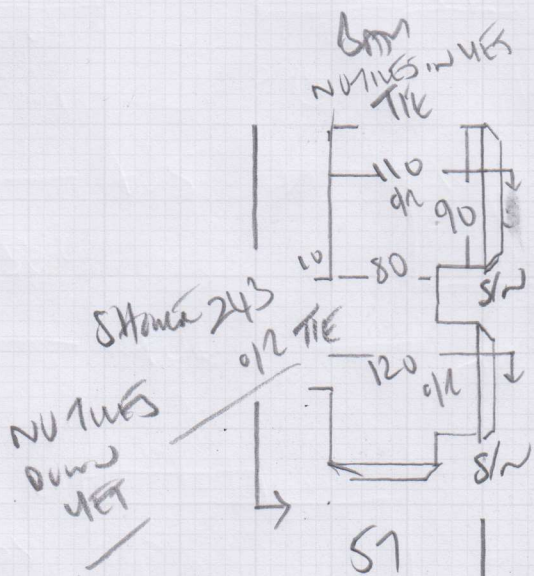 BATH
NO TILES IN YET
TIE
110
O/R 90
10 80
S/N
SHOWER 243
O/R TIE
120 O/R
NO TILES
DOWN
YET
S/N
51